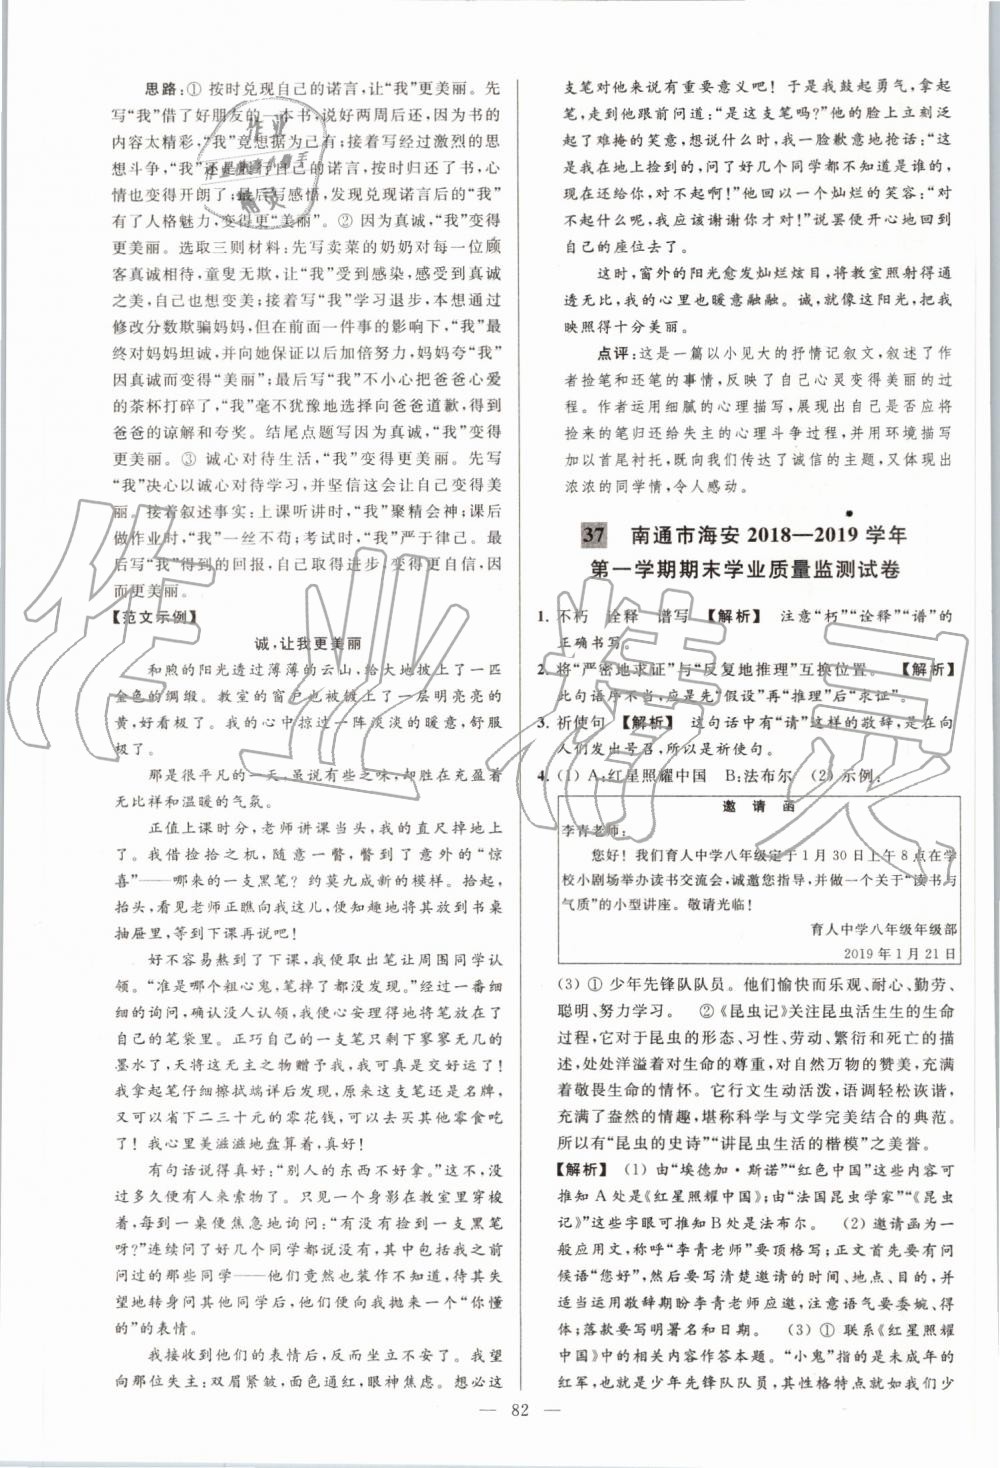 思路:① 按时兑现自己的诺言,让“我”更美丽。先
写“我”借了好朋友的一本书,说好两周后还,因为书
的内容太精彩,“我”竟想据为己有;接着写经过激烈的思
想斗争,“我”还是兑行自己的诺言,按时归还了书,心
情也变得开朗了;最后写感悟,发现兑现诺言后的“我”
有了人格魅力,变得更“美丽”。② 因为真诚,“我”变得
更美丽。选取三则材料:先写卖菜的奶奶对每一位顾
客真诚相待,童叟无欺,让“我”受到感染,感受到真诚
之美,自己也想变美;接着写“我”学习退步,本想通过
修改分数欺骗妈妈,但在前面一件事的影响下,“我”最
终对妈妈坦诚,并向她保证以后加倍努力,妈妈夸“我”
因真诚而变得“美丽”;最后写“我”不小心把爸爸心爱
的茶杯打碎了,“我”毫不犹豫地选择向爸爸道歉,得到
爸爸的谅解和夸奖。结尾点题写因为真诚,“我”变得
更美丽。③ 诚心对待生活,“我”变得更美丽。先写
“我”决心以诚心对待学习,并坚信这会让自己变得美
丽。接着叙述事实:上课听讲时,“我”聚精会神;课后
做作业时,“我”一丝不苟;考试时,“我”严于律己。最
后写“我”的诚心得到了应有的回报,“我”因
而更美丽。
【范文示例】
诚,让我更美丽
和煦的阳光透过薄薄的云山,给大地披上了一匹
金色的绸缎。教室的窗户也被打上了一层明亮亮的
黄,好看极了。我的心中掠过一阵淡淡的暖意,舒服
极了。
那是很平凡的一天,虽说有些之味,却胜在充盈着
无比祥和温暖的气氛。
正值上课时分,老师讲课当头,我的直尺掉地上
了。我借捡拾之机,随意一瞥,瞥到了意外的“惊
喜”——哪来的一支黑笔? 约莫九成新的模样。拾起,
抬头,看见老师正瞧向我这儿,便知趣地将笔放在书桌
抽屉里,等到下课再说吧!
好不容易熬到了下课,我便取出笔让周围同学认
领。“准是哪个粗心鬼,笔掉了都没发现。”经过一番细
细的询问,确认没人认领,我便心安理得地将笔放在我
的笔袋里。正巧自己的一支笔只剩下寥寥无几的
墨水了,天将这无主之物赠予我,我岂有不受之理?
我拿起笔仔细擦拭端详后发现,原来这支笔还是名牌,
又可以省下二三十元的零花钱,可以去买其他零食吃
了! 我心里美滋滋地盘算着,真好!
有句话说得真好:“别人的东西不好用。”这不,没
过多久便有人来索物了。只见一个身影在教室里穿梭
着,每到一桌便焦急地询问:“有没有捡到一支黑笔
呀?”连续问了好几个同学都没有。直到他来到了之前
问过的那些同学——他们竟然也装作不知道,待其失
望地转身问其他同学后,他们便向我抛来一个“你懂
的”的表情。
我接收到他们的表情后,反而坐立不安了。我望
向那位失主:双眉紧皱,面色通红,眼神焦虑。想必这
支笔对他来说有重要意义吧! 于是我鼓起勇气,拿起
笔,走到他跟前问道:“是这支笔吗?”他的脸上立刻泛
起了难掩的笑意,想说什么时,我一脸歉意地抢话:“是
我在地上捡到的,问了好几个同学都不知道是谁的,
现在还给你,对不起啊!”他回以一个灿烂的笑容:“对
不起什么呢,我应该谢谢你才对!”说罢便开心地回到
自己的座位去了。
这时,窗外的阳光愈发灿烂炫目,将教室照射得通
透无比,我的心里也暖意融融。诚,就像这阳光,把我
映照得十分美丽。
点评:这是一篇以小见大的抒情记叙文,叙述了作
者捡笔和还笔的事情,反映了自己心灵变得美丽的过
程。作者运用细腻的心理描写,展现出自己是否应将
捡来的笔归还给失主的心理斗争过程,并用环境描写
加以首尾衬托,既向我们传达了诚信的主题,又体现出
浓浓的同学情,令人感动。
37 南通市海安 2018—2019 学年
第一学期期末学业质量监测试卷
1. 不朽 诠释 谱写 【解析】 注意“朽”“诠释”“谱”的
正确书写。
2. 将“严密地求证”与“反复地推理”互换位置。 【解析】
此句语序不当,应是先“假设”再“推理”后“求证”。
3. 祈使句 【解析】 这句话中有“请”这样的敬辞,是在向
人们发出号召,所以是祈使句。
4. (1) A:红星照耀中国 B:法布尔 (2) 示例:
邀 请 函
李青老师:
您好! 我们育人中学八年级定于 1 月 30 日上午 8 点在学
校小剧场举办读书交流会,诚邀您指导,并做一个关于“读书与
气质”的小型讲座。敬请光临!
育人中学八年级年级部
2019 年 1 月 21 日
(3) ① 少年先锋队队员。他们愉快而乐观、耐心、勤劳、
聪明、努力学习。 ②《昆虫记》关注昆虫活生生的生命
过程,它对于昆虫的形态、习性、劳动、繁衍和死亡的描
述,处处洋溢着对生命的尊重,对自然万物的赞美,充满
着敬畏生命的情怀。它行文生动活泼,语调轻松诙谐,
充满了盎然的情趣,堪称科学与文学完美结合的典范。
所以有“昆虫的史诗”“讲昆虫生活的楷模”之美誉。
【解析】 (1) 由“埃德加·斯诺”“红色中国”这些内容可
推知 A 处是《红星照耀中国》;由“法国昆虫学家”“《昆虫
记》”这些字眼可推知 B 处是法布尔。 (2) 邀请函为一
般应用文,称呼“李青老师”要顶格写;正文首先要有问
候语“您好”,然后要写清楚邀请的时间、地点、目的,并
适当运用敬辞期盼李青老师应邀,注意语气要委婉、得
体;落款要写明署名和日期。 (3) ① 联系《红星照耀
中国》中的相关内容作答本题。“小鬼”指的是未成年的
红军,也就是少年先锋队队员,其性格特点就如我们少
— 82 —
作业精灵